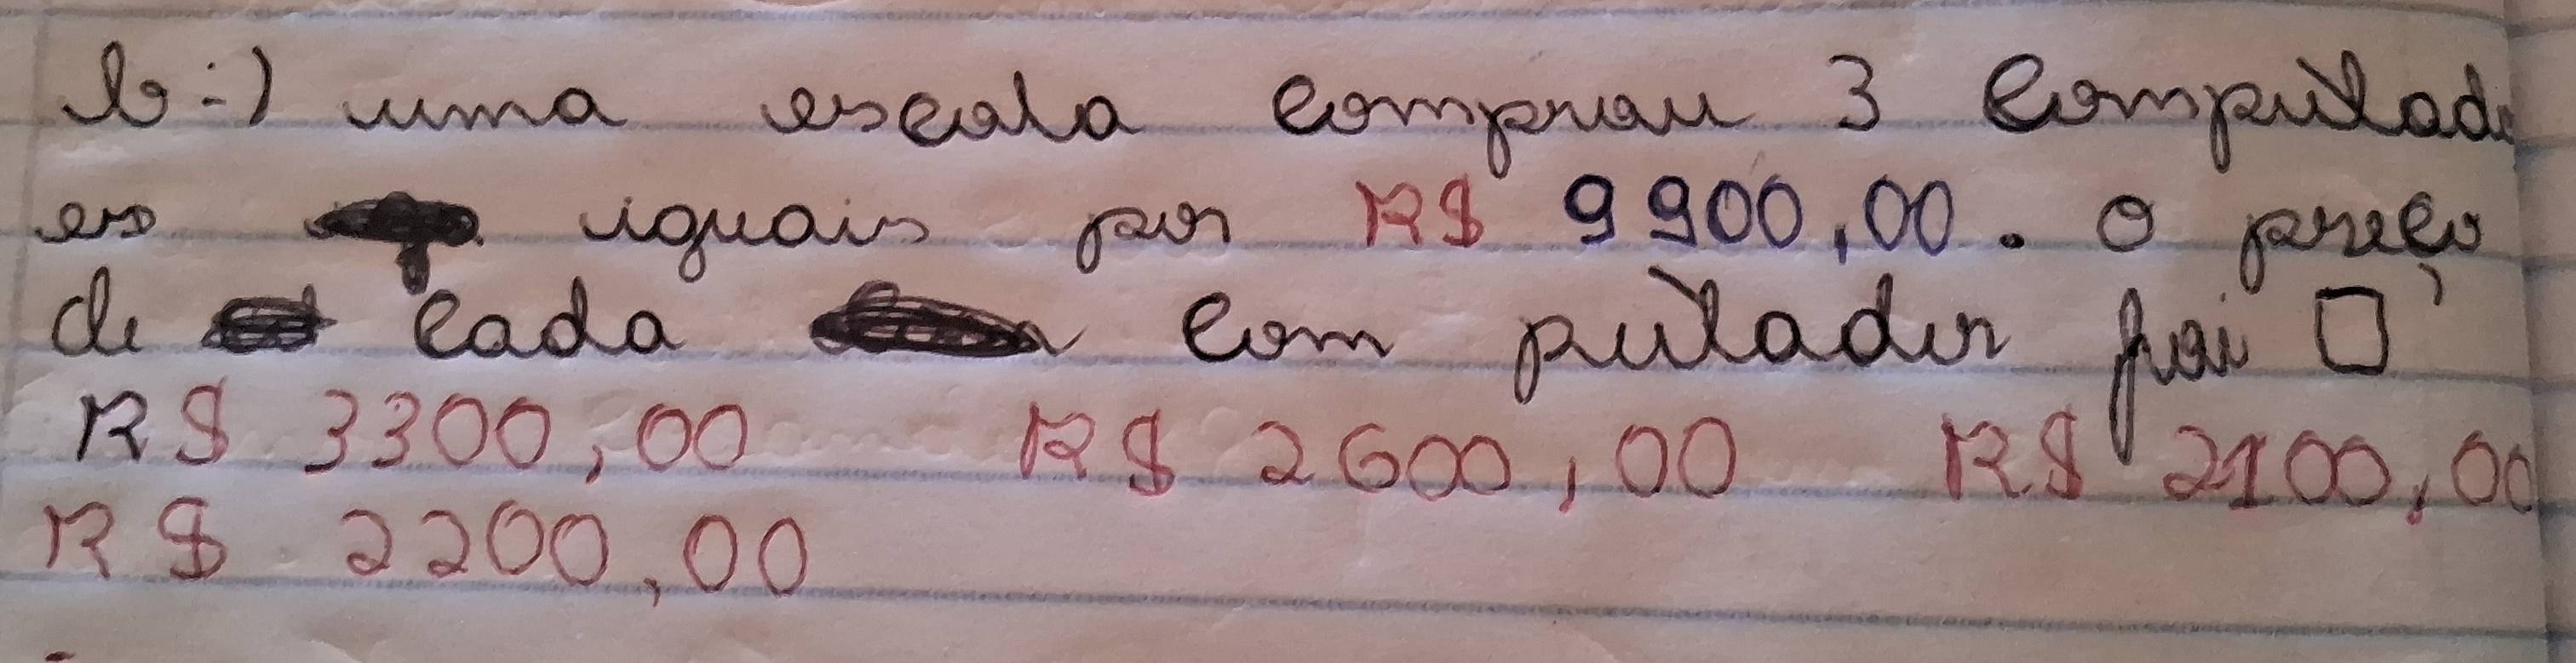 b-) uma escola comprou 3 computador
es iguais por R$ 9900,00. O preço
de cada com putador foi □
R$ 3300,00 R$ 2600,00 R$ 2100,00
R$ 2200,00